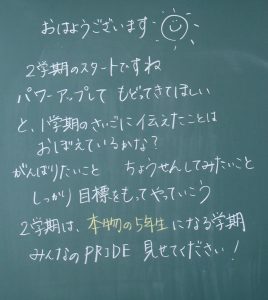 おはようございます
2学期のスタートですね
パワーアップして もどってきてほしい
と、1学期のさいごに伝えたことは
おぼえているかな?
がんばりたいこと ちょうせんしてみたいこと
しっかり目標をもってやっていこう
2学期は、本物の5年生になる学期
みんなのPRIDE 見せてください!